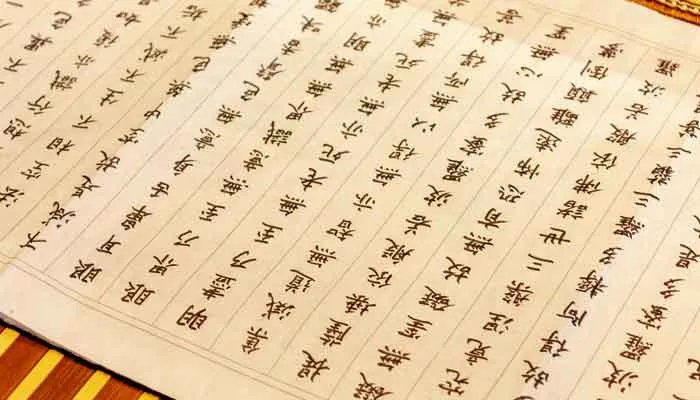 不異色
想行識亦復如
法空相不生不滅不
不減是故空中無色
眼耳鼻舌身意無色聲香味
眼界乃至無意識界無無明亦
明盡乃至無老死亦無老死盡
集滅道無智亦無得以無所得故
提薩埵依般若波羅蜜多故心無罣
礙無罣礙故無有恐怖遠離顛倒夢
究竟涅槃三世諸佛依般若波羅
故得阿耨多羅三藐三
羅蜜多是